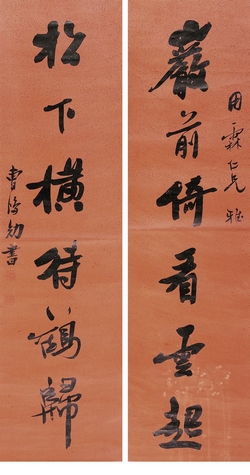 用霖仁兄雅
巖前倚看雲起
松下橫待鶴歸
曹鴻勛書